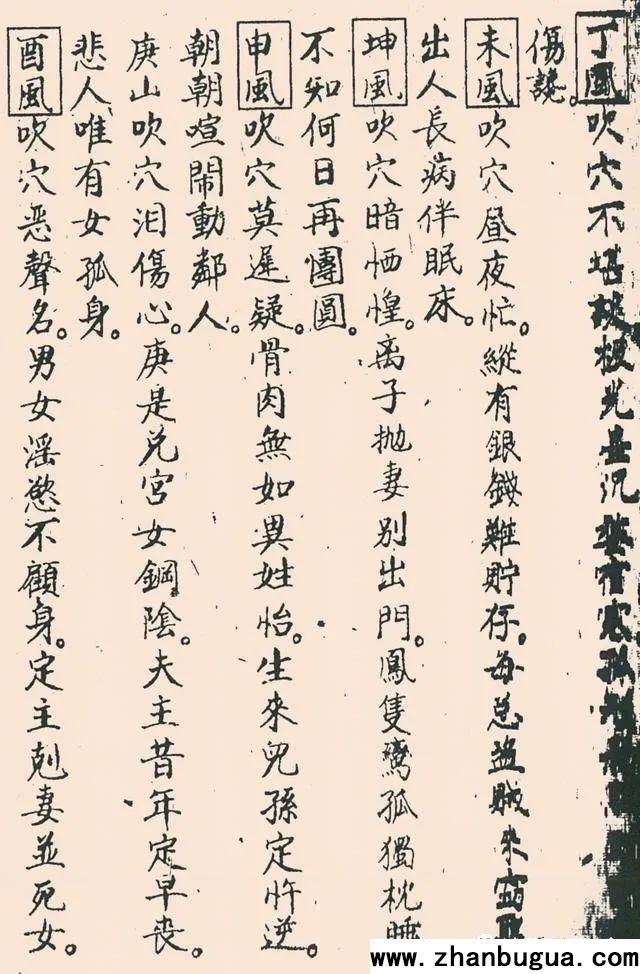 丁風吹穴不堪
傷
未風吹穴昼夜忙。縱有銀錢難貯存。每忌盜賊來窃
出人長病伴眠床。
坤風吹穴暗恓惶。离子抛妻别出門。鳳隻鸞孤獨枕睡
不知何日再慱圓。
申風吹穴莫遲疑。骨肉無如異姓怡。生來兒孫定忤逆。
朝朝喧閙動鄰人。
庚山吹穴泪傷心。庚是兑宮女鋼陰。夫主昔年定早丧。
悲人唯有女孤身。
酉風吹穴恶聲名。男女淫慾不顧身。定主剋妻並死女。
www.zhanbugua.com